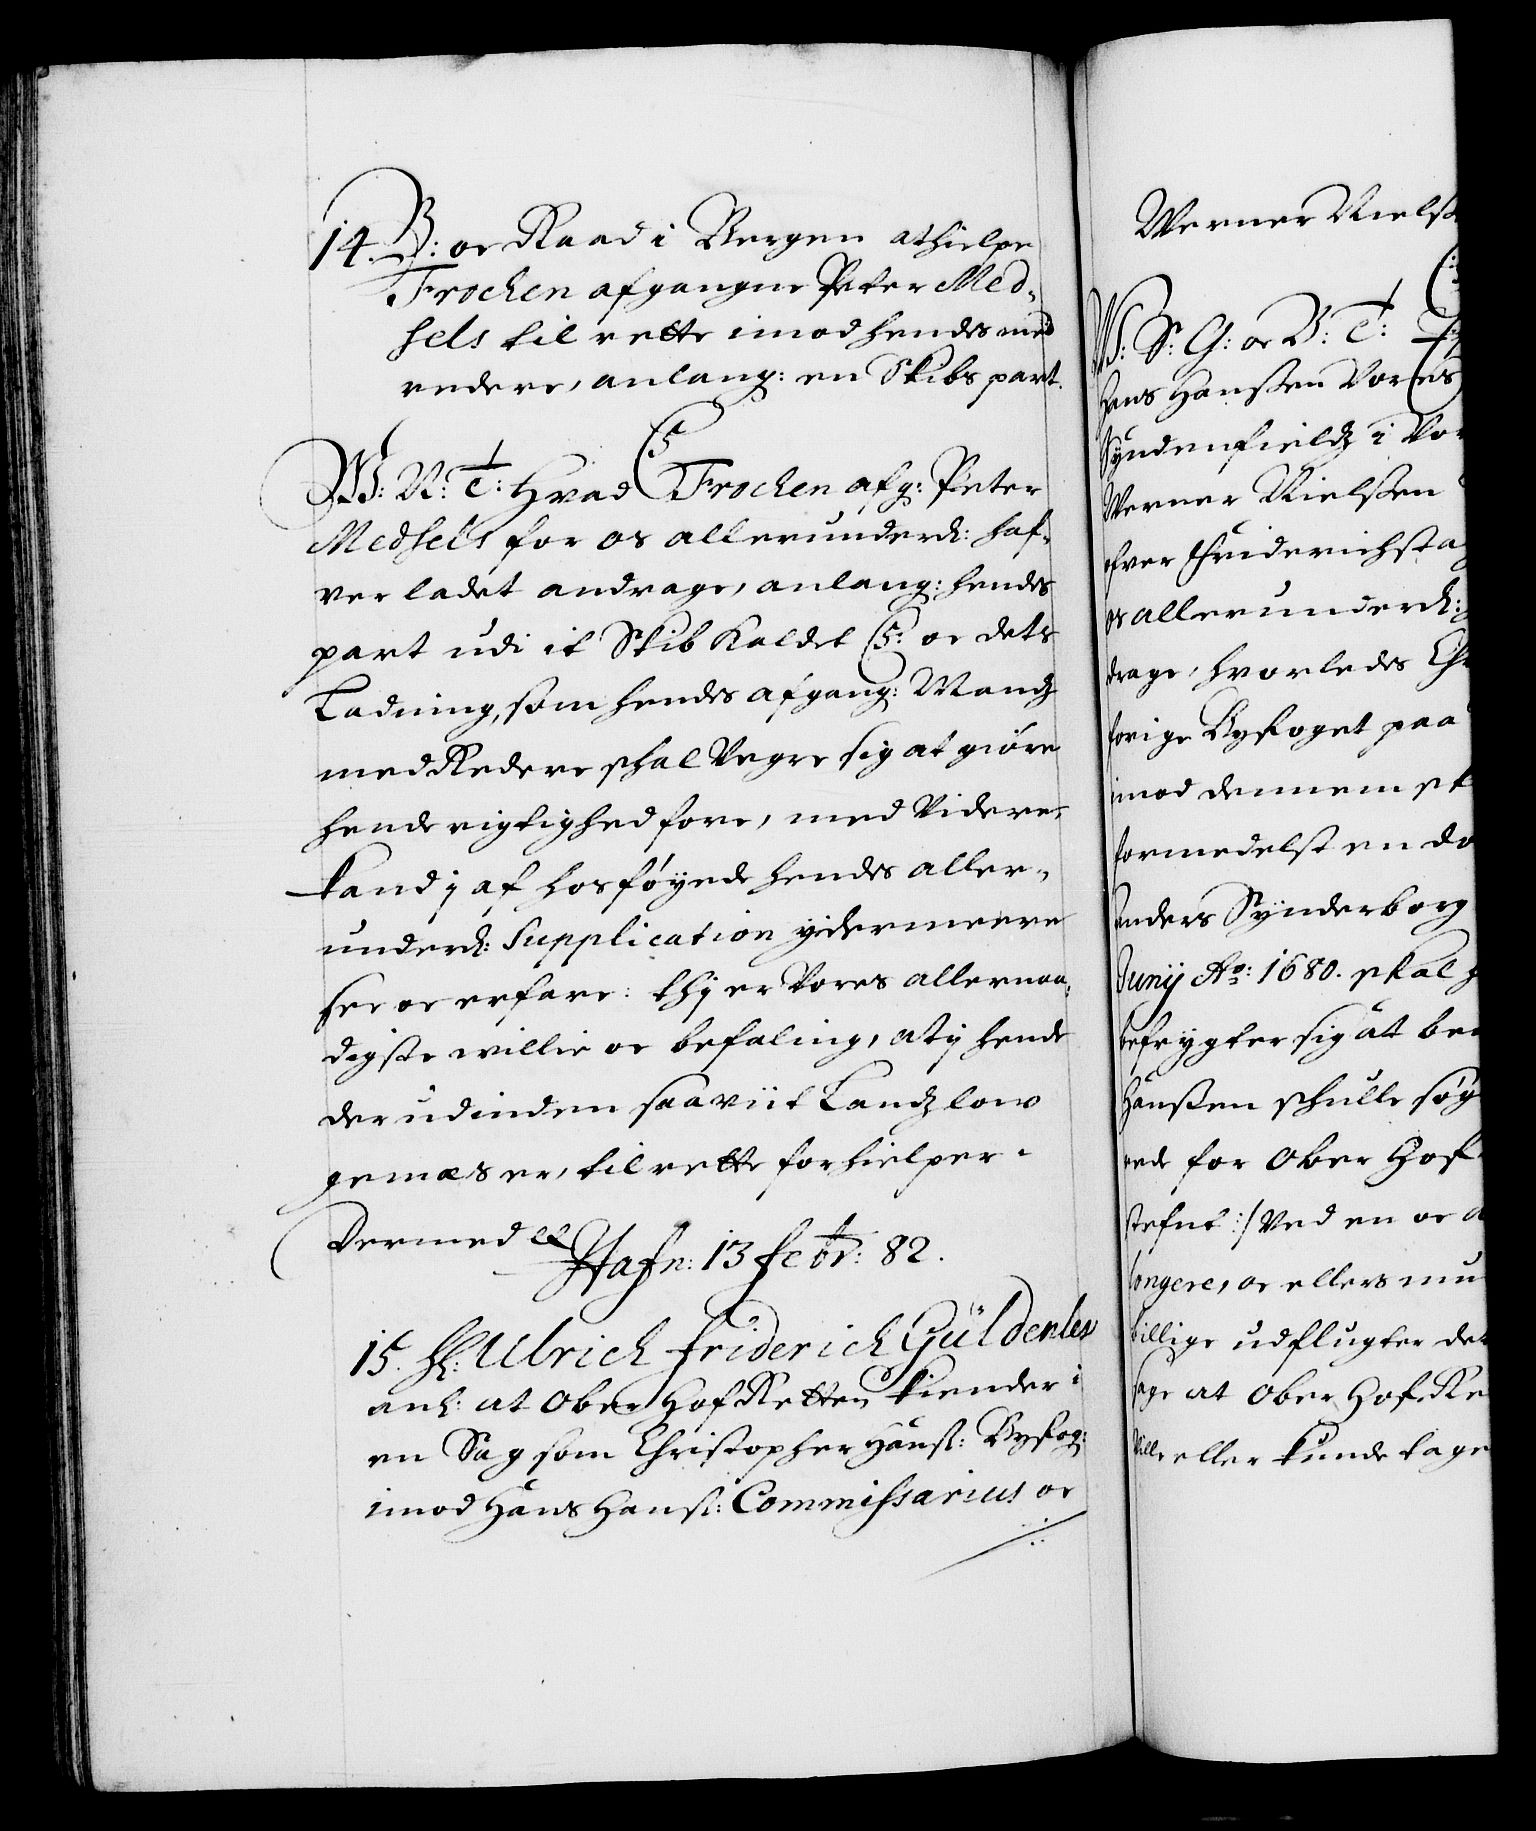 14. B: oc Raad i Bergen at hielpe
Trochen afgangne Peter Med-
sels til rette imod hendes med
redere, anlang: en Skibs part.
W: V: T: Hvad (5 Trochen afg: Peter
Medsels for os allerunderd: haf-
ver ladet andrage, anlang: hendes
part udi it Skib kaldet (5: oc dets
Ladning, som hendes afgang: Mandz
med Redere schal Vegre sig at giöre
hende rigtighed fore, med Videre,
kand j af hosföyede hendes aller-
underd: Supplication ydermeere
see oc erfare: thj er Vores allernaa-
digste willie oc befaling, at j hende
der udinden saaviit Landz low
gemæs er, til rette forhielper.
Dermed etc
Hafn: 13 febr: 82.
15. H: Ulrich friderich Güldenlew
anl: at Ober Hof Retten kiender i
en Sag som Christopher Hanss: Byfog:
imod Hans Hanss: Commissarius oc
Werner Nielss
W: S: G: oc V: T:
Hans Hanssen Vores
Syndenfieldz i Vor
Werner Nielssen
ofver Friderichsta
os allerunderd:
drage, hvorledes Chr
forige Byfoget paa
imod dennem st
formedelst en do
Anders Synderborg
Junij Ao: 1680. skal
befrygter sig at be
Hanssen schulle søg
rede for Ober Hof-
stefnt :/ Ved en oc a
longere, oc ellers mu
billige udflugter det
sage at Ober Hof Re
Ville eller kunde tage